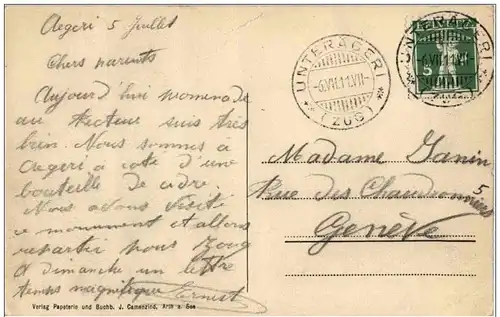 Aegeri 5 Juillet
Chers parents
Aujourd'hui promenade
au Recteur suis très
bien. Nous sommes à
Aegeri à coté d'une
bouteille de cidre.
Nous avons visité
ce monument et allons
repartir pour Zoug
A dimanche un lettre
temps magnifique Ernest
Verlag Papeterie und Buchb. J. Camenzind, Arth a. See
UNTERÄGERI
-6.VII.11.VII-
(ZUG)
UNTERÄGERI
-6.VII.11.VII-
5
Madame Janin
5
Rue des Chaudronniers
Genève